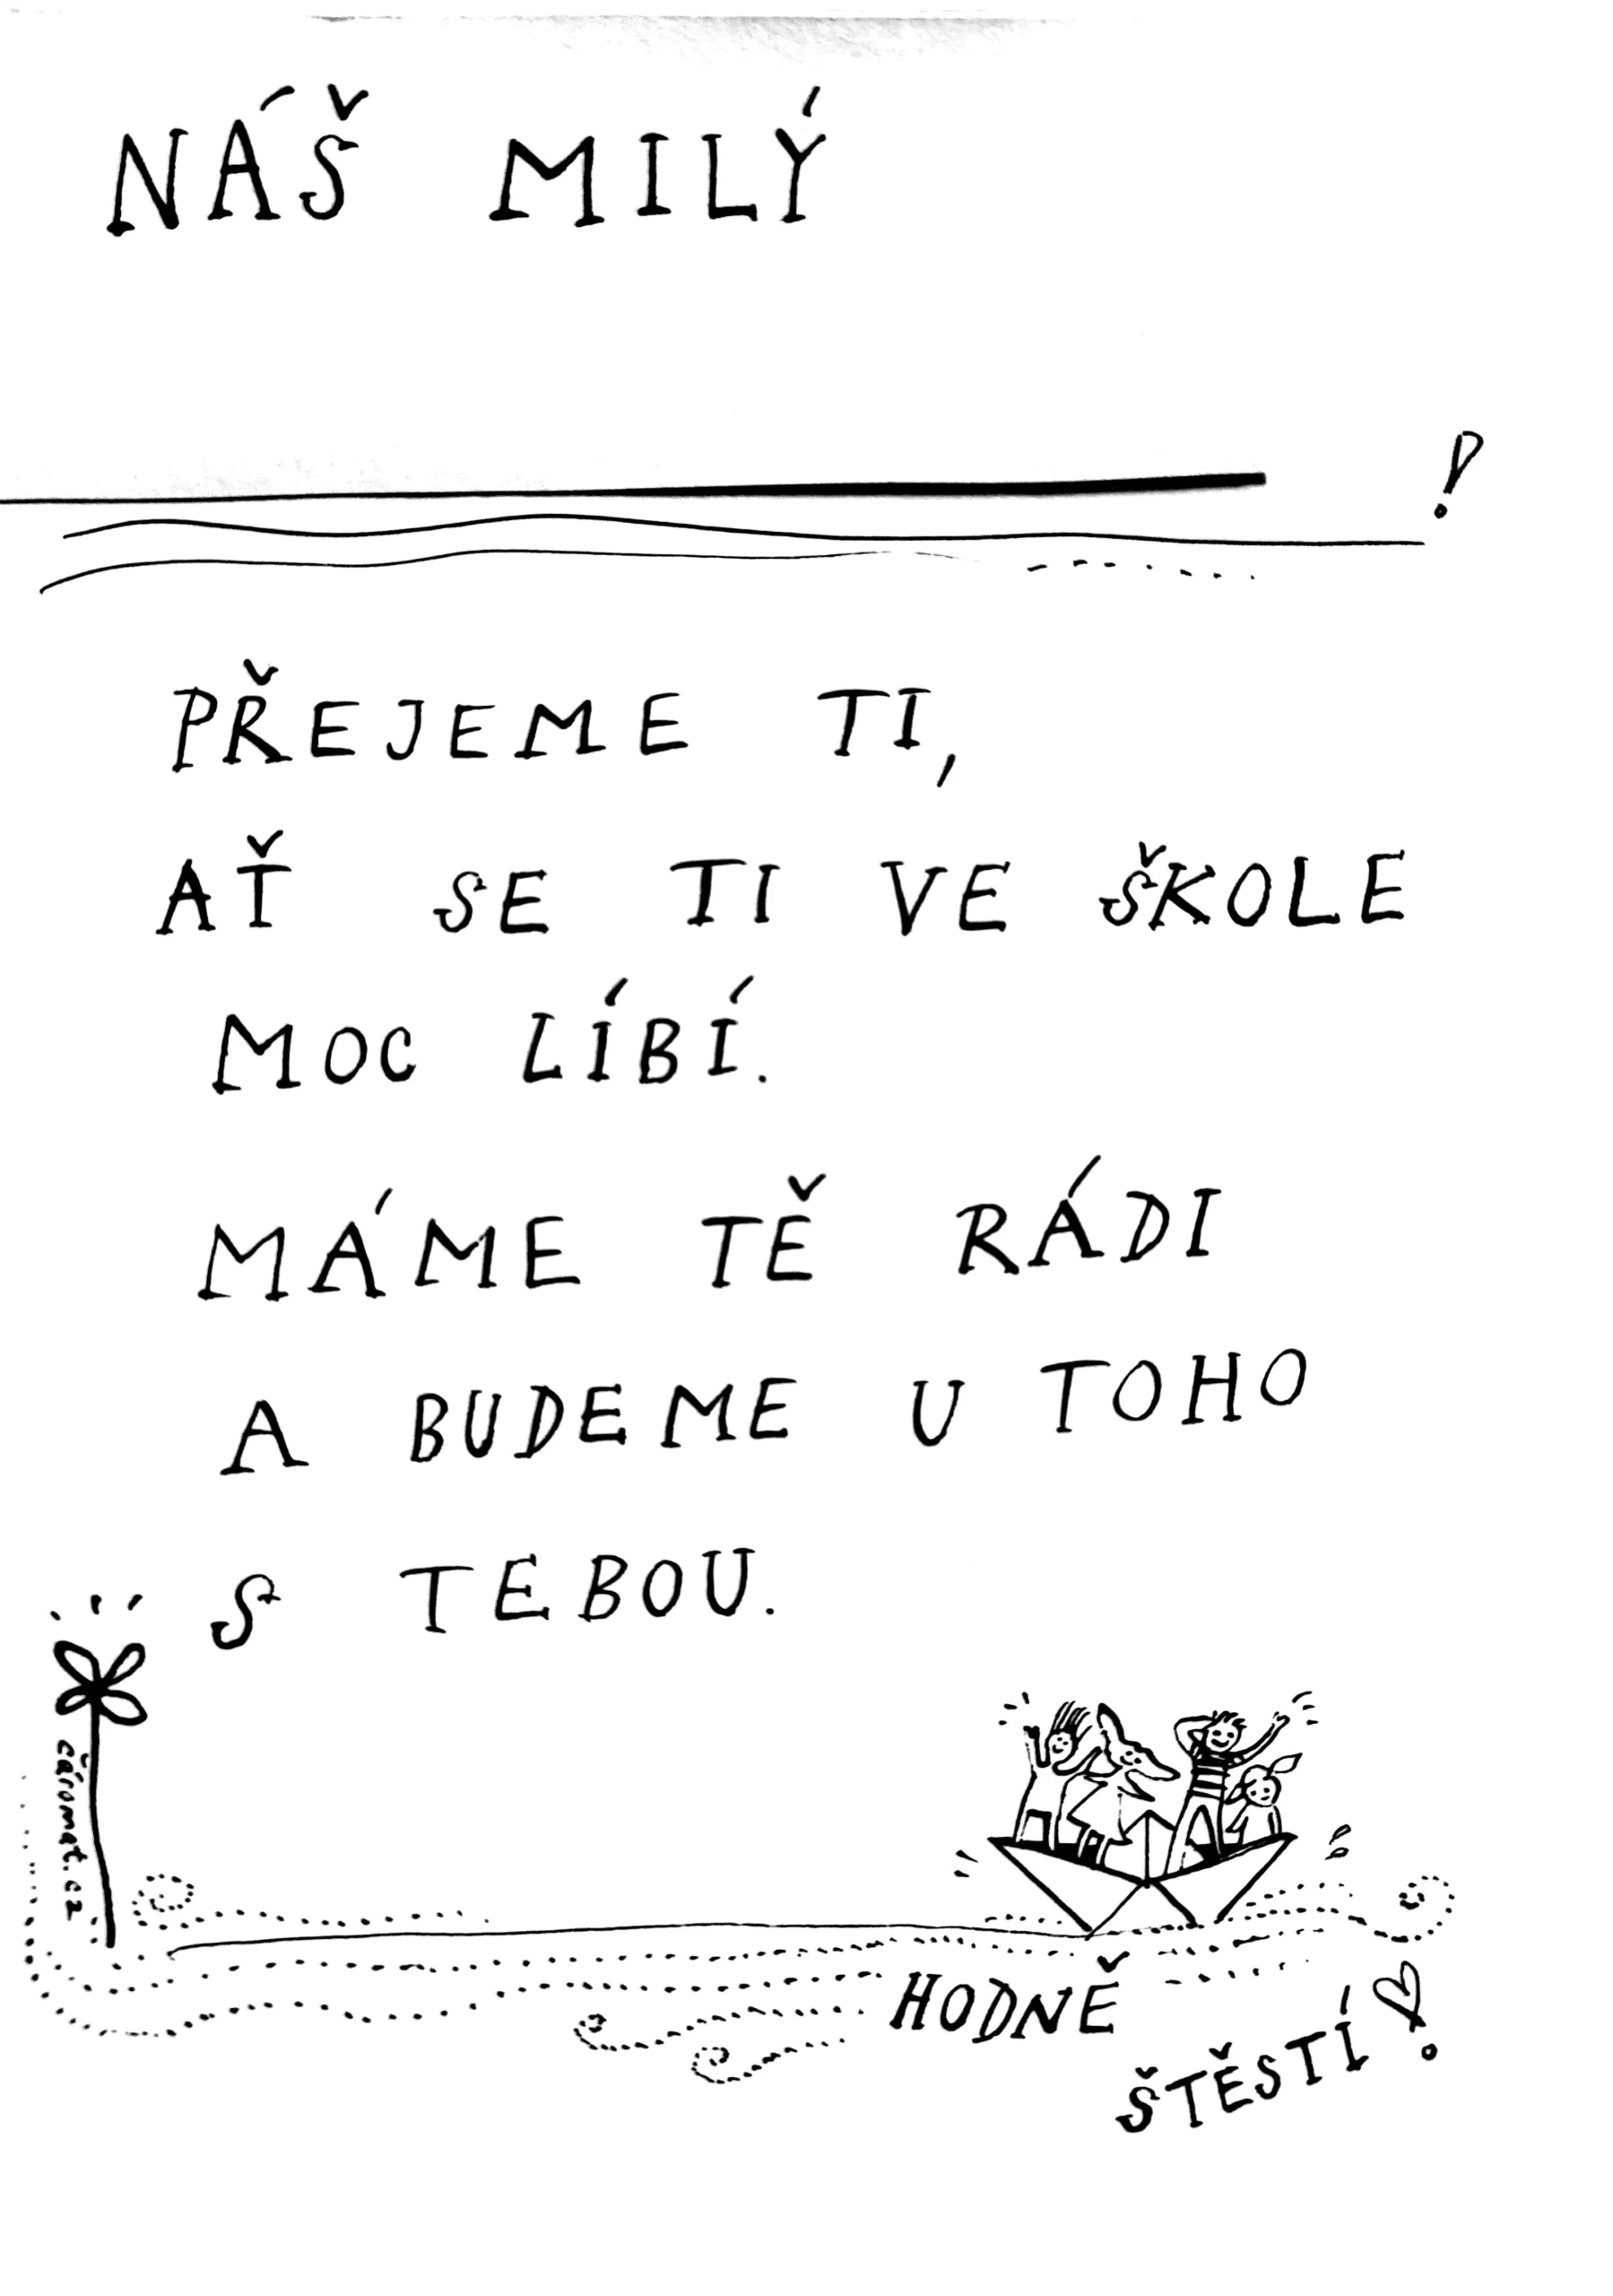 NÁŠ MILÝ
!
PŘEJEME TI,
AŤ SE TI VE ŠKOLE
MOC LÍBÍ.
MÁME TĚ RÁDI
A BUDEME U TOHO
S TEBOU.
čáromat.cz
HODNĚ
ŠTĚSTÍ!